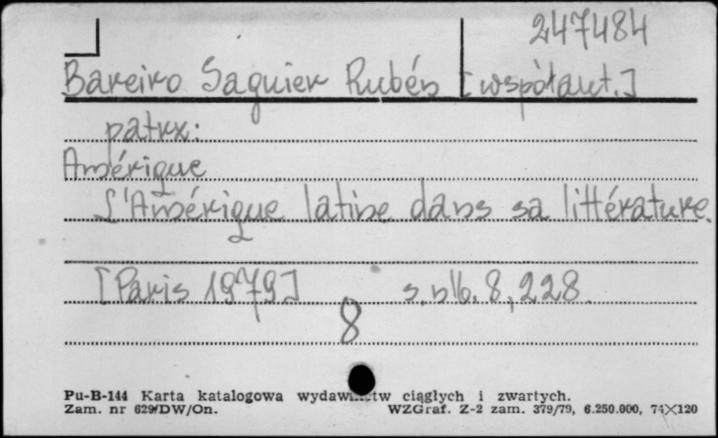 247484
Bareiro Saguier Rubén [współaut.]
patrz:
Amérique
L'Amérique latine dans sa littérature.
[Paris 1979] s. nlb. 8, 228.
8
Pu-B-144 Karta katalogowa wydawnictw ciągłych i zwartych.
Zam. nr 629/DW/On. WZGraf. Z-2 zam. 379/79, 6.250.000, 74×120